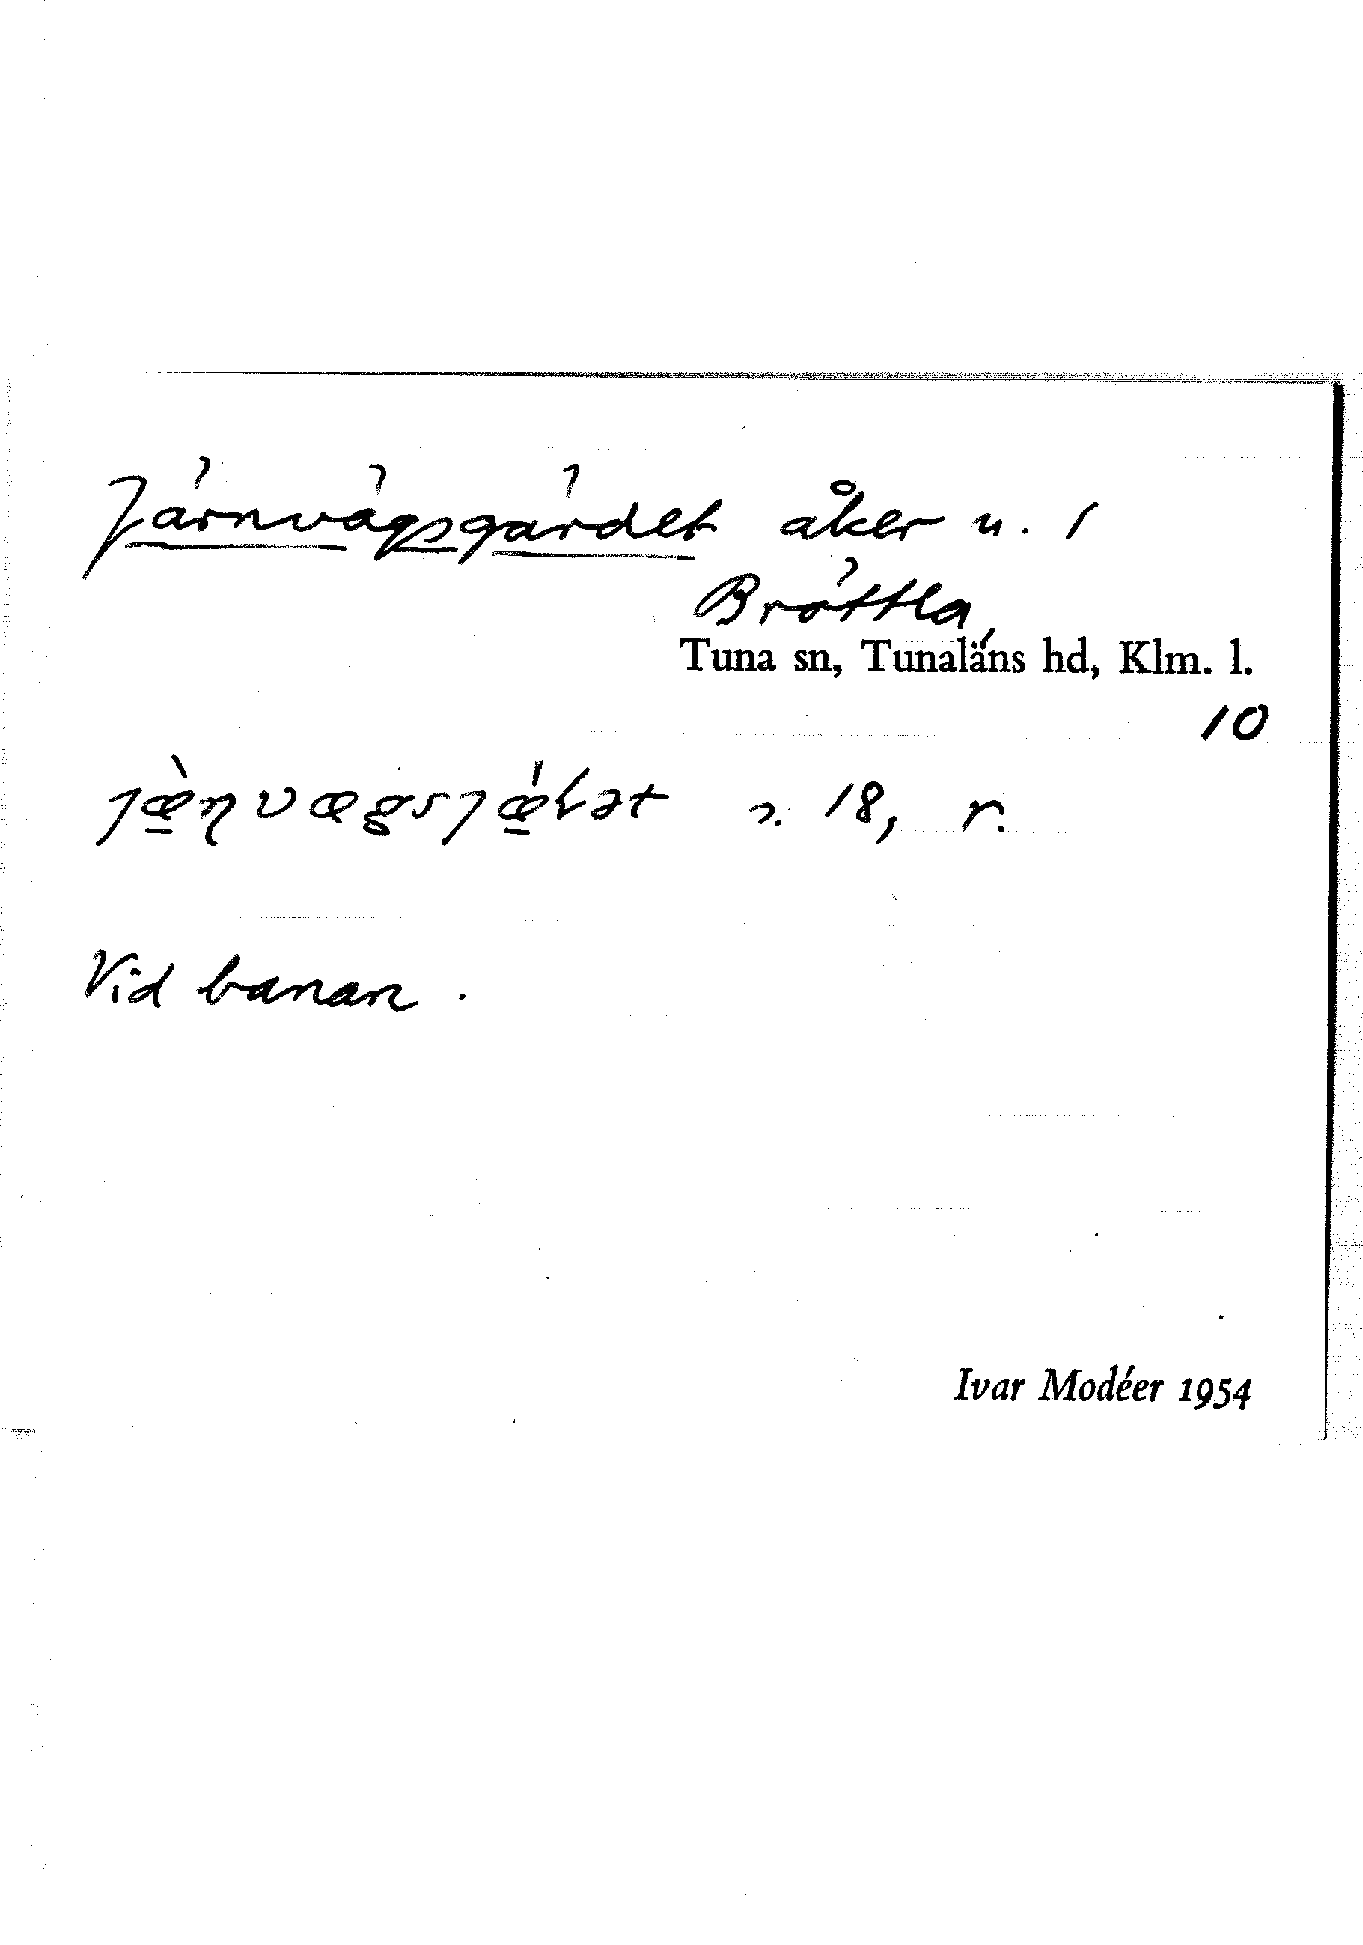 Järnvägsgärdet åker u. 1
Bröttla,
Tuna sn, Tunaläns hd, Klm. l.
10
jæ̀ꞃvægsjǽɽət n. 18, r.
Vid banan.
Ivar Modéer 1954